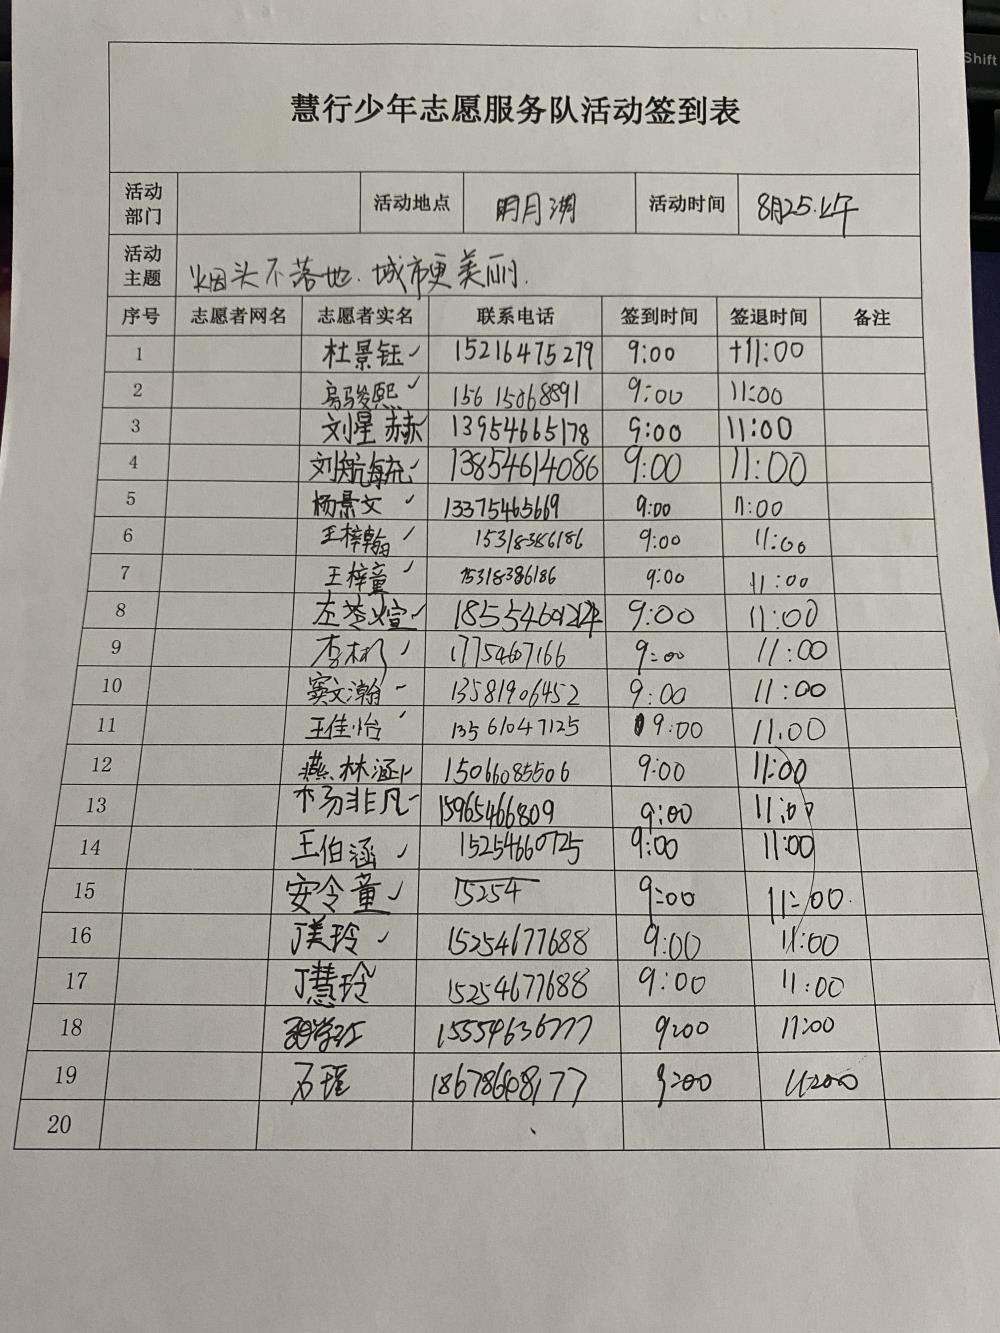 Shift
慧行少年志愿服务队活动签到表
活动部门 活动地点 明月湖 活动时间 8月25.上午
活动主题 烟头不落地.城市更美丽.
序号 志愿者网名 志愿者实名 联系电话 签到时间 签退时间 备注
1 杜景钰✓ 15216475279 9:00 11:00
2 房骏熙✓ 15615068891 9:00 11:00
3 刘星赫 13954665178 9:00 11:00
4 刘航毓 13854614086 9:00 11:00
5 杨景文✓ 13375465669 9:00 11:00
6 王梓翰✓ 15318386186 9:00 11:00
7 王梓童✓ 15318386186 9:00 11:00
8 左苓煊✓ 9:00 11:00
9 李彬✓ 17754607166 9:00 11:00
10 窦文瀚- 13581906452 9:00 11:00
11 王佳怡✓ 13561047125 9:00 11:00
12 燕林涵 15066085506 9:00 11:00
13 杨非凡- 15965466809 9:00 11:00
14 王伯涵✓ 15254660725 9:00 11:00
15 安令童✓ 15254 9:00 11:00
16 丁美玲✓ 15254677688 9:00 11:00
17 丁慧玲✓ 15254677688 9:00 11:00
18 15554636777 9:00 11:00
19 石瑶 18678608177 9:00 11:00
20